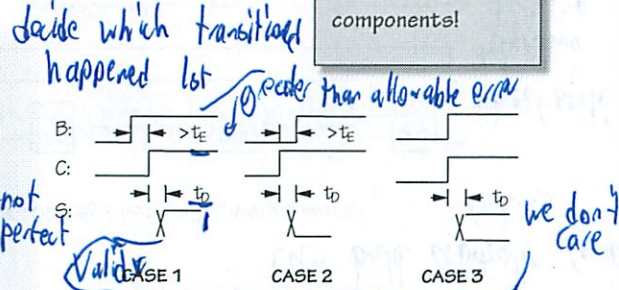 components!
decide which transitional
happened 1st
greater than allowable error
B: >tE >tE
C:
tD tD tD
S:
not
perfect
we don't
care
Valid
CASE 1 CASE 2 CASE 3